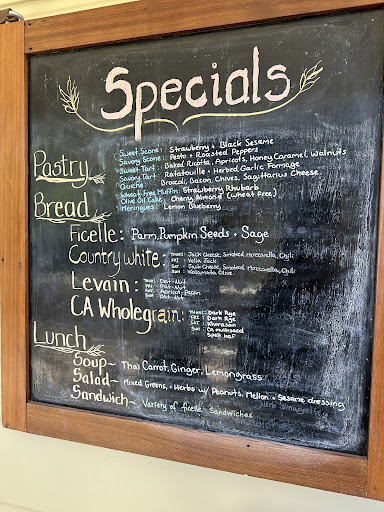 Specials
Pastry
Sweet Scone: Strawberry + Black Sesame
Savory Scone: Pesto + Roasted Peppers
Sweet Tart: Baked Ricotta, Apricots, Honey Caramel, Walnuts
Savory Tart: Ratatouille + Herbed Garlic Fromage
Quiche: Brocoli, Bacon, Chives, Sagittarius Cheese
Wheat Free Muffin: Strawberry Rhubarb
Olive Oil Cake: Cherry Almond (wheat free)
Meringues: Lemon Blueberry
Bread
Ficelle: Parm, Pumpkin Seeds + Sage
Country White: THURS: Jack Cheese, Smoked Mozzarella, Chili
FRI: Vella Jack
SAT: Jack Cheese, Smoked Mozzarella, Chili
SUN: Kalamata Olive
Levain: THURS: Oat-Nut
FRI: Oat-Nut
SAT: Apricot-Pecan
SUN: Oat-Nut
CA Wholegrain: THURS: Dark Rye
FRI: Dark Rye
SAT: Khorasan
SUN: CA Multiseed
Spelt loaf
Lunch
Soup- Thai Carrot, Ginger, Lemongrass
Salad- Mixed Greens, + Herbs w/ Peanuts, Mellon + Sesame dressing
Sandwich- Variety of ficelle sandwiches